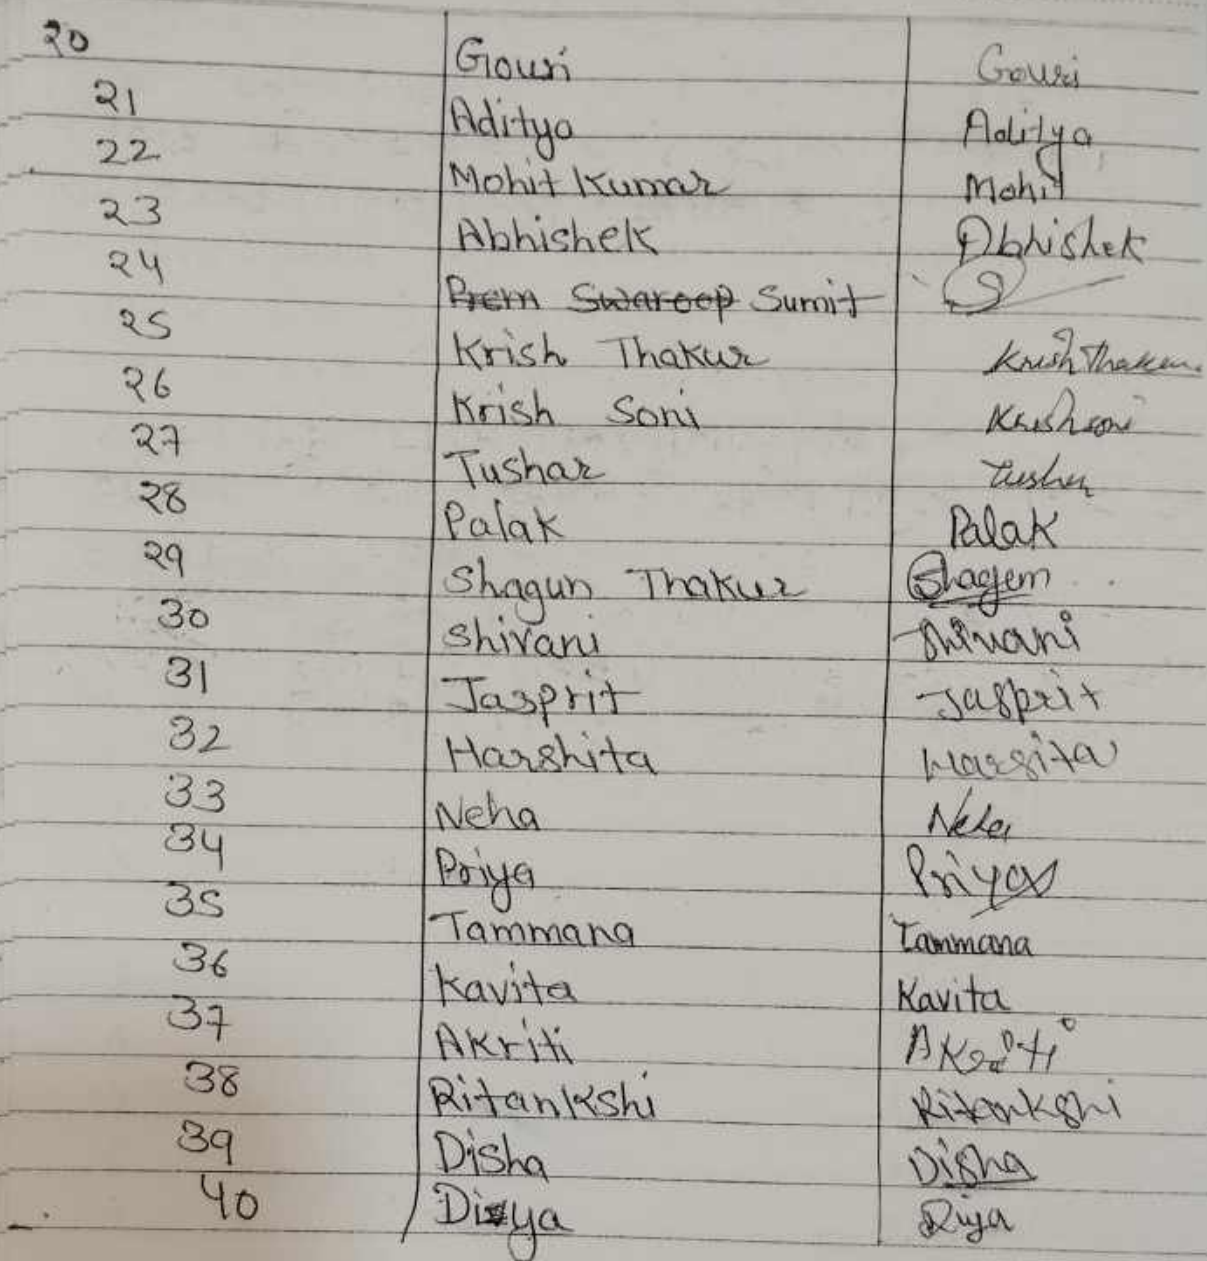 20 Gouri Gouri
21 Aditya Aditya
22 Mohit Kumar Mohit
23 Abhishek Abhishek
24 Prem Swaroop Sumit
25 Krish Thakur Krish Thakur
26 Krish Soni Krish soni
27 Tushar Tushar
28 Palak Palak
29 Shagun Thakur Shagun
30 Shivani Shivani
31 Jasprit Jasprit
32 Harshita Harsita
33 Neha Neha
34 Priya Priya
35 Tammana Tammana
36 Kavita Kavita
37 Akriti Akriti
38 Ritankshi Ritankshi
39 Disha Disha
40 Diya Diya